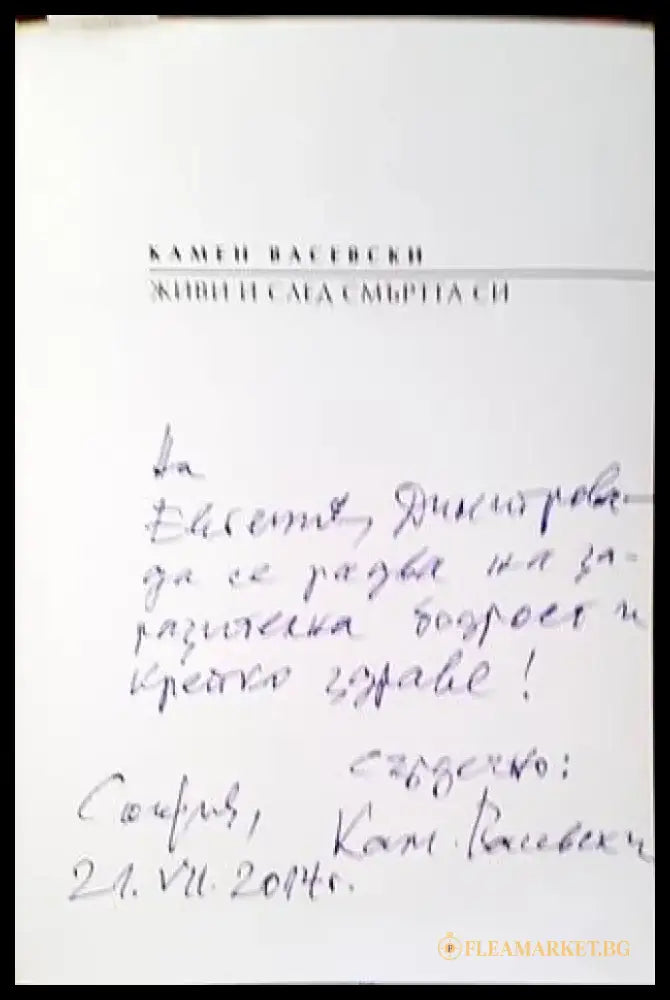 КАМЕН ВАСЕВСКИ
ЖИВИ И СЛЕД СМЪРТТА СИ
На
Евгения Димитрова -
да се радва на за-
разителна бодрост и
крепко здраве!
Сърдечно:
София, Кам. Васевски
21. VII. 2014 г.
FLEAMARKET.BG